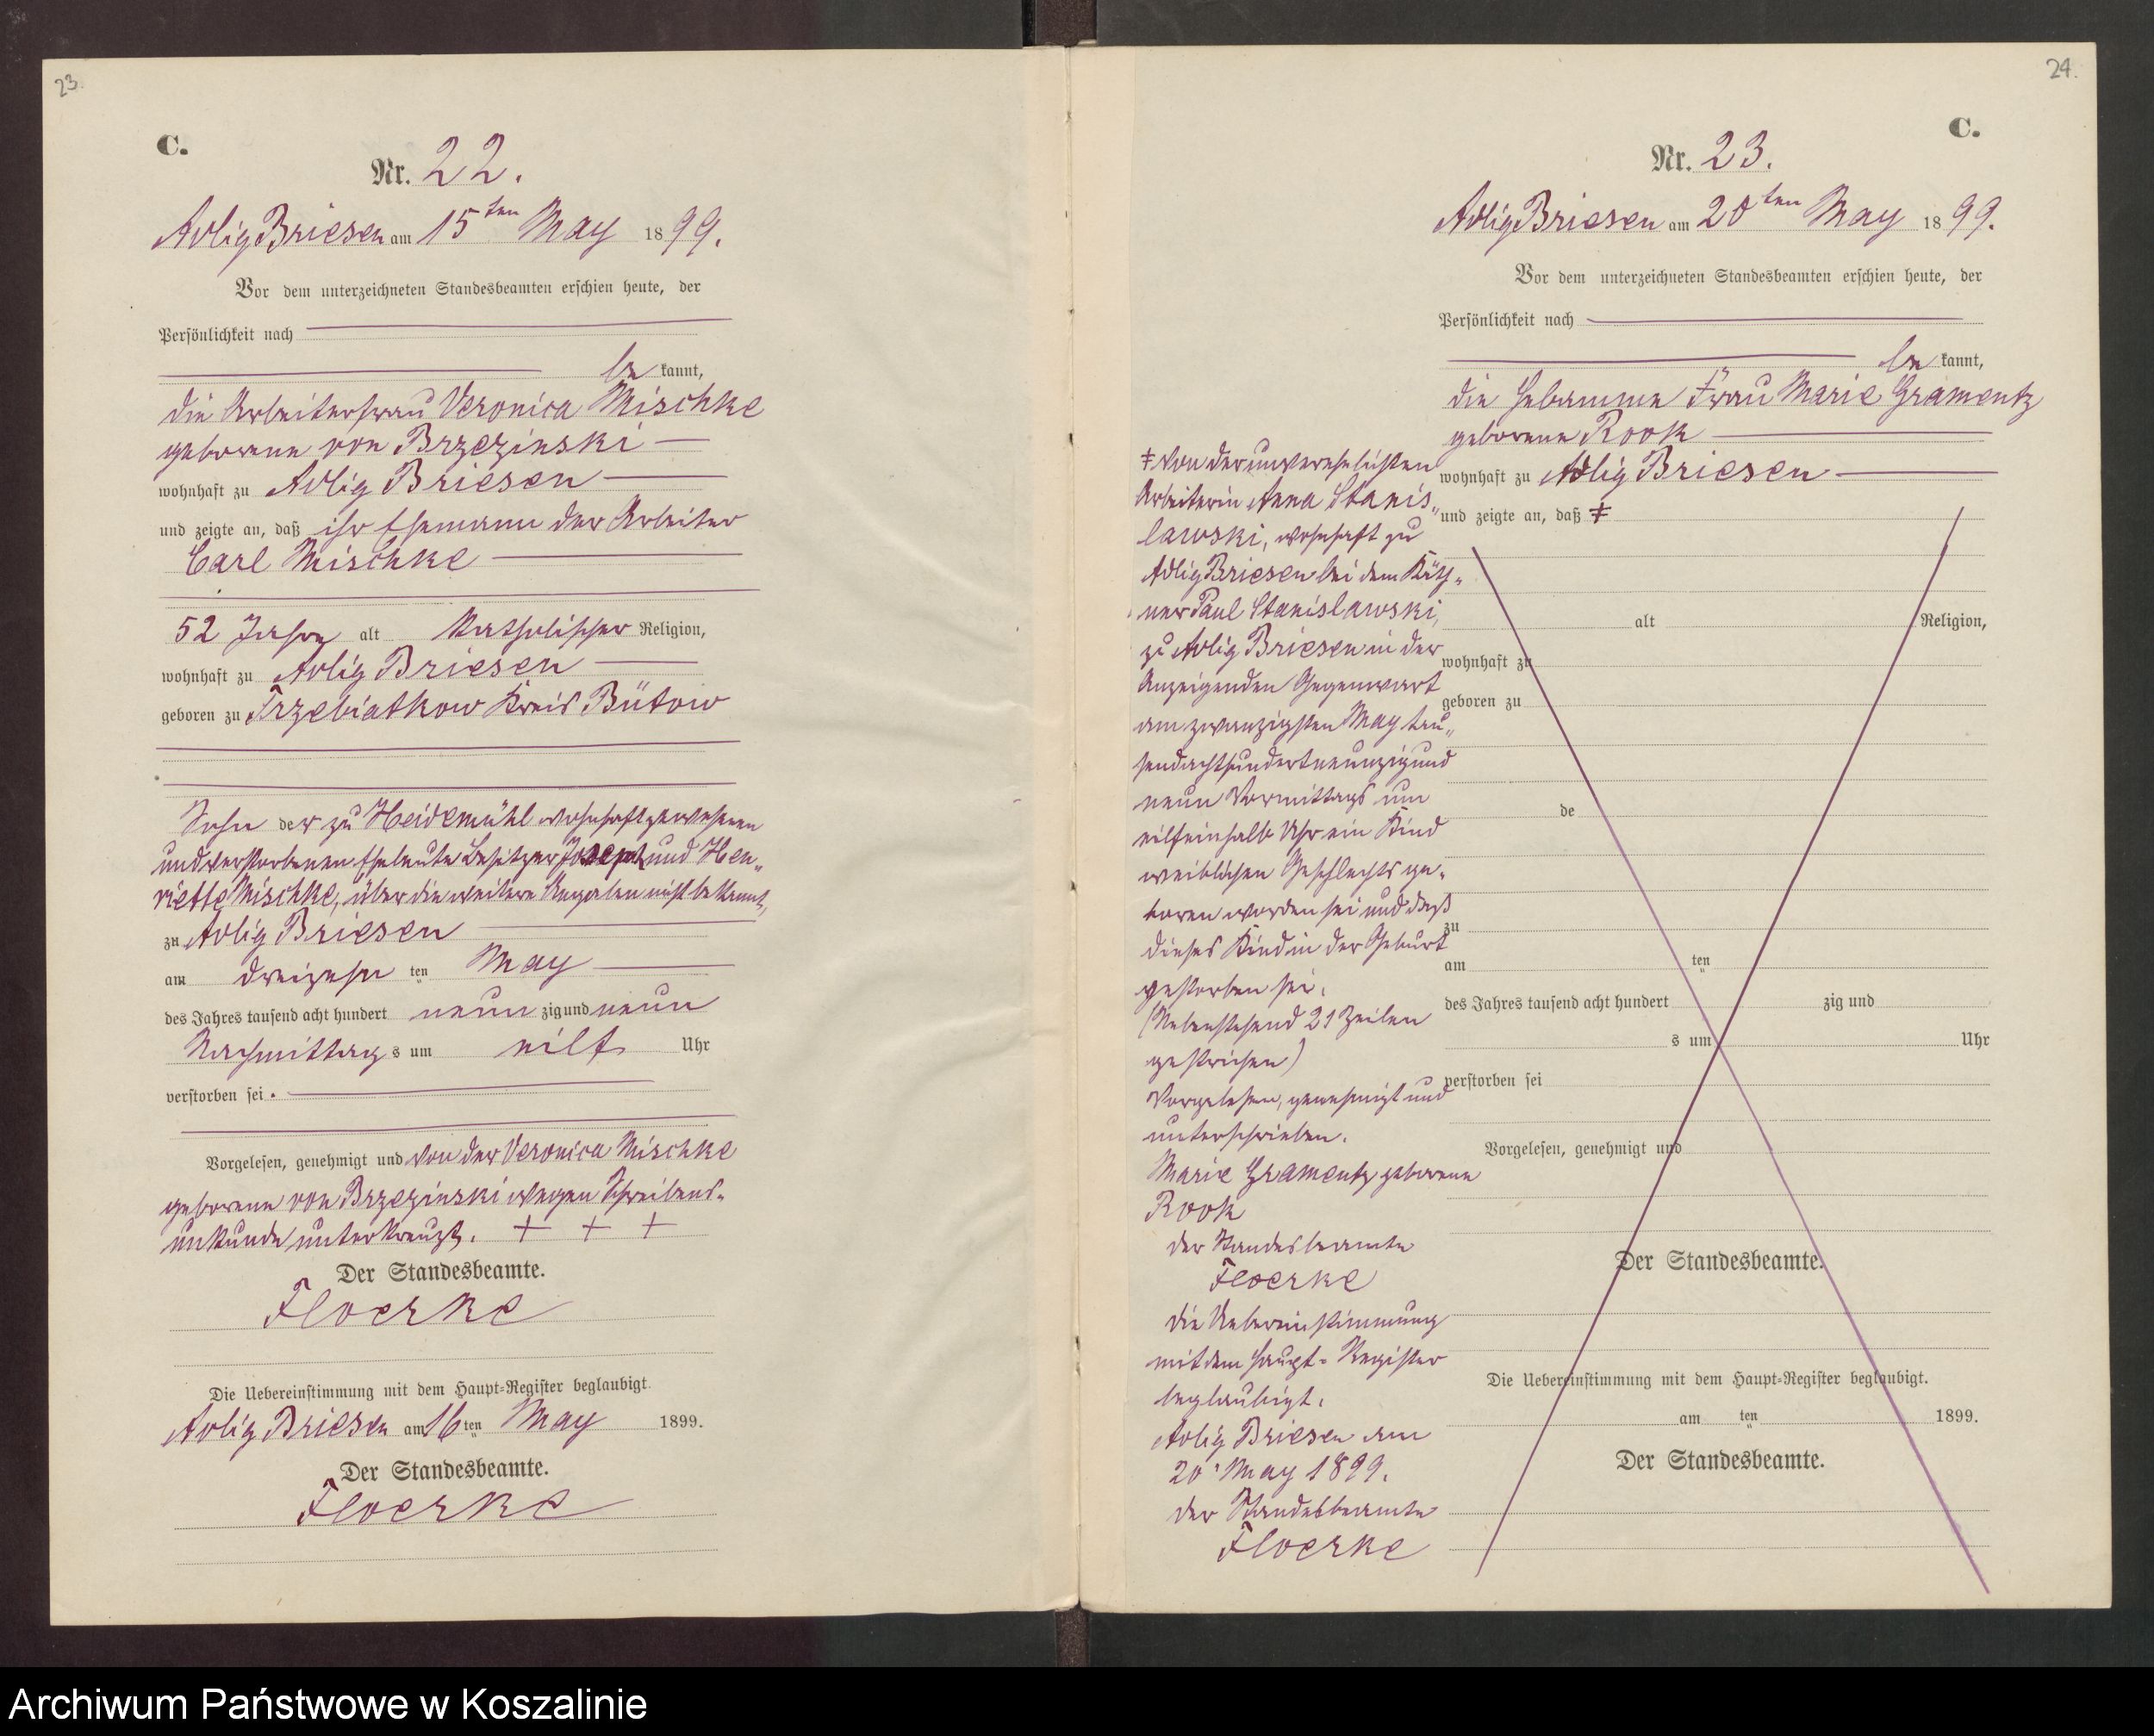 23.
C.
Nr. 22.
Adlig Briesen am 15ten May 1899.
Vor dem unterzeichneten Standesbeamten erschien heute, der
Persönlichkeit nach
be kannt,
die Arbeiterfrau Veronica Mischke
geborene von Brzezinski
wohnhaft zu Adlig Briesen
und zeigte an, daß ihr Ehemann der Arbeiter
Carl Mischke
52 Jahre alt Katholischer Religion,
wohnhaft zu Adlig Briesen
geboren zu Trzebiatkow Kreis Bütow
Sohn der zu Heidemühl wohnhaft gewesenen
und verstorbenen Eheleute Besitzer Joseph und Hen„
riette Mischke, über die weitere Angaben nicht bekannt,
zu Adlig Briesen
am dreizehn ten May
des Jahres tausend acht hundert neun zig und neun
Nachmittag s um eilf Uhr
verstorben sei.
Vorgelesen, genehmigt und von der Veronica Mischke
geborene von Brzezinski wegen Schreibens-
unkunde unterkreuzt. + + +
Der Standesbeamte.
Floerke
Die Uebereinstimmung mit dem Haupt-Register beglaubigt.
Adlig Briesen am 16 ten May 1899.
Der Standesbeamte.
Floerke
24.
C.
Nr. 23.
Adlig Briesen am 20ten May 1899.
Vor dem unterzeichneten Standesbeamten erschien heute, der
Persönlichkeit nach
be kannt,
die Hebamme Frau Marie Gramentz
geborene Rook
wohnhaft zu Adlig Briesen
und zeigte an, daß ‡
‡ von der unverehelichten
Arbeiterin Anna Stanis„
lawski, wohnhaft zu
Adlig Briesen bei dem Käth-
ner Paul Stanislawski,
zu Adlig Briesen in der
Anzeigenden Gegenwart
am zwanzigsten May tau„
sendachthundertneunzigund
neun Vormittags um
eilfeinhalb Uhr ein Kind
weiblichen Geschlechts ge-
boren worden sei und daß
dieses Kind in der Geburt
gestorben sei.
(Nebenstehend 21 Zeilen
gestrichen)
Vorgelesen, genehmigt und
unterschrieben.
Marie Gramentz geborene
Rook
der Standesbeamte
Floerke
die Uebereinstimmung
mit dem Haupt-Register
beglaubigt.
Adlig Briesen am
20. May 1899.
der Standesbeamte
Floerke
alt Religion,
wohnhaft zu
geboren zu
de
zu
am ten
des Jahres tausend acht hundert zig und
s um Uhr
verstorben sei
Vorgelesen, genehmigt und
Der Standesbeamte.
Die Uebereinstimmung mit dem Haupt-Register beglaubigt.
am ten 1899.
Der Standesbeamte.
Archiwum Państwowe w Koszalinie